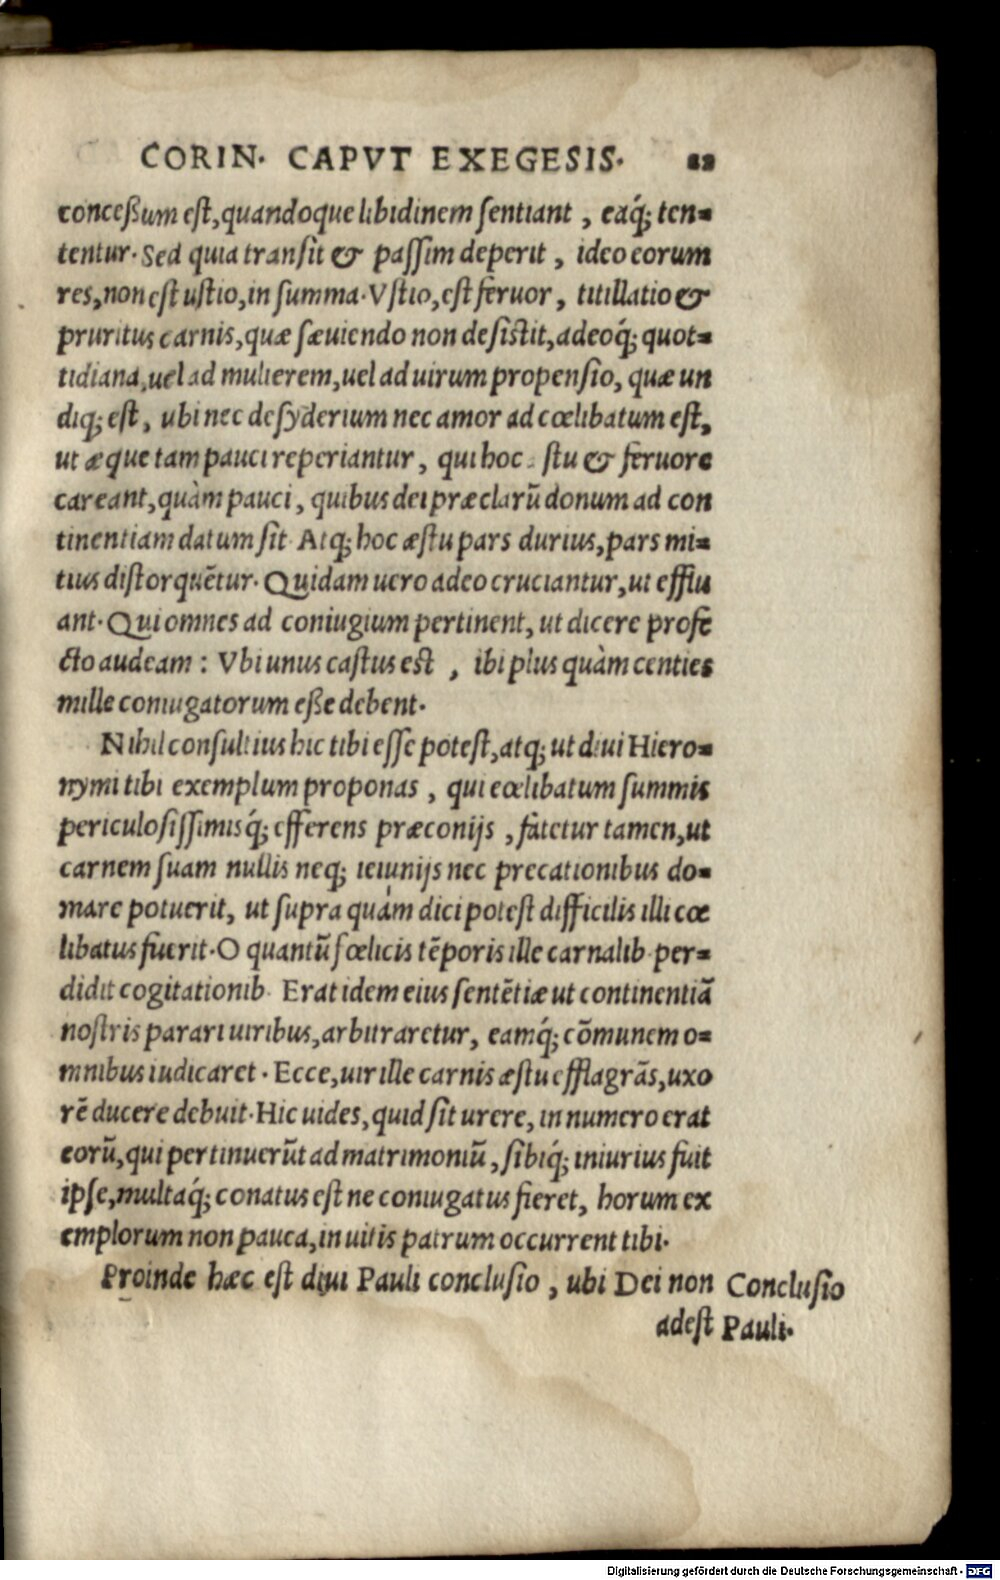 CORIN. CAPVT EXEGESIS. 22
conceßum est, quandoque libidinem sentiant, eaq́; ten-
tentur. Sed quia transit & passim deperit, ideo eorum
res, non est ustio, in summa. Vstio, est feruor, titillatio &
pruritus carnis, quæ sæuiendo non desistit, adeoq́; quot-
tidiana, uel ad mulierem, uel ad uirum propensio, quæ un
diq; est, ubi nec desyderium nec amor ad cœlibatum est,
ut æque tam pauci reperiantur, qui hoc stu & feruore
careant, quàm pauci, quibus dei præclarū donum ad con
tinentiam datum sit. Atq; hoc æstu pars durius, pars mi-
tius distorquētur. Quidam uero adeo cruciantur, ut efflu
ant. Qui omnes ad coniugium pertinent, ut dicere profe
cto audeam: Vbi unus castus est, ibi plus quàm centies
mille coniugatorum eße debent.
Nihil consultius hic tibi esse potest, atq; ut diui Hiero-
nymi tibi exemplum proponas, qui cœlibatum summis
periculosissimisq́; efferens præconijs, fatetur tamen, ut
carnem suam nullis neq; ieiunijs nec precationibus do-
mare potuerit, ut supra quàm dici potest difficilis illi cœ
libatus fuerit. O quantū fœlicis tēporis ille carnalib. per-
didit cogitationib. Erat idem eius sentētiæ ut continentiā
nostris parari uiribus, arbitraretur, eamq́; cōmunem o-
mnibus iudicaret. Ecce, uir ille carnis æstu efflagrās, uxo
rē ducere debuit. Hic uides, quid sit urere, in numero erat
eorū, qui pertinuerūt ad matrimoniū, sibiq́; iniurius fuit
ipse, multaq́; conatus est ne coniugatus fieret, horum ex
emplorum non pauca, in uitis patrum occurrent tibi.
Proinde hæc est diui Pauli conclusio, ubi Dei non Conclusio
adest Pauli.
Digitalisierung gefördert durch die Deutsche Forschungsgemeinschaft - DFG